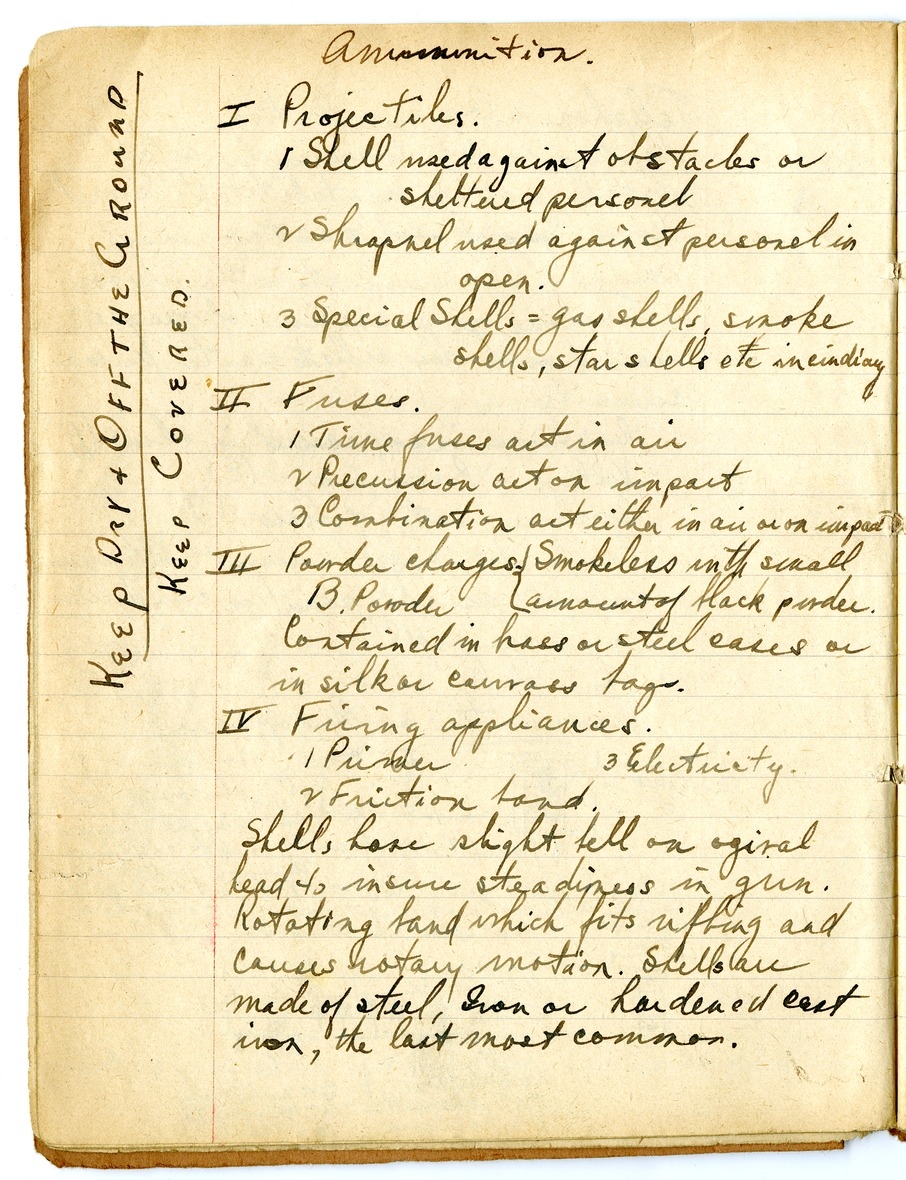 Ammunition.
I Projectiles.
1 Shell used against obstacles or
sheltered personel
2 Shrapnel used against personel in
open.
3 Special Shells = gas shells, smoke
shells, star shells etc incindiary
II Fuses.
1 Time fuses act in air
2 Precussion act on impact
3 Combination act either in air or on impact
III Powder charges. { Smokeless with small
B. Powder { amount of black powder.
Contained in brass or steel cases or
in silk or canvass bags.
IV Firing appliances.
1 Primer 3 Electricity.
2 Friction band.
Shells have slight bell on ogival
head to insure steadiness in gun.
Rotating band which fits rifling and
causes rotary motion. Shells are
made of steel, Iron or hardened cast
iron, the last most common.
KEEP DRY & OFF THE GROUND
KEEP COVERED.